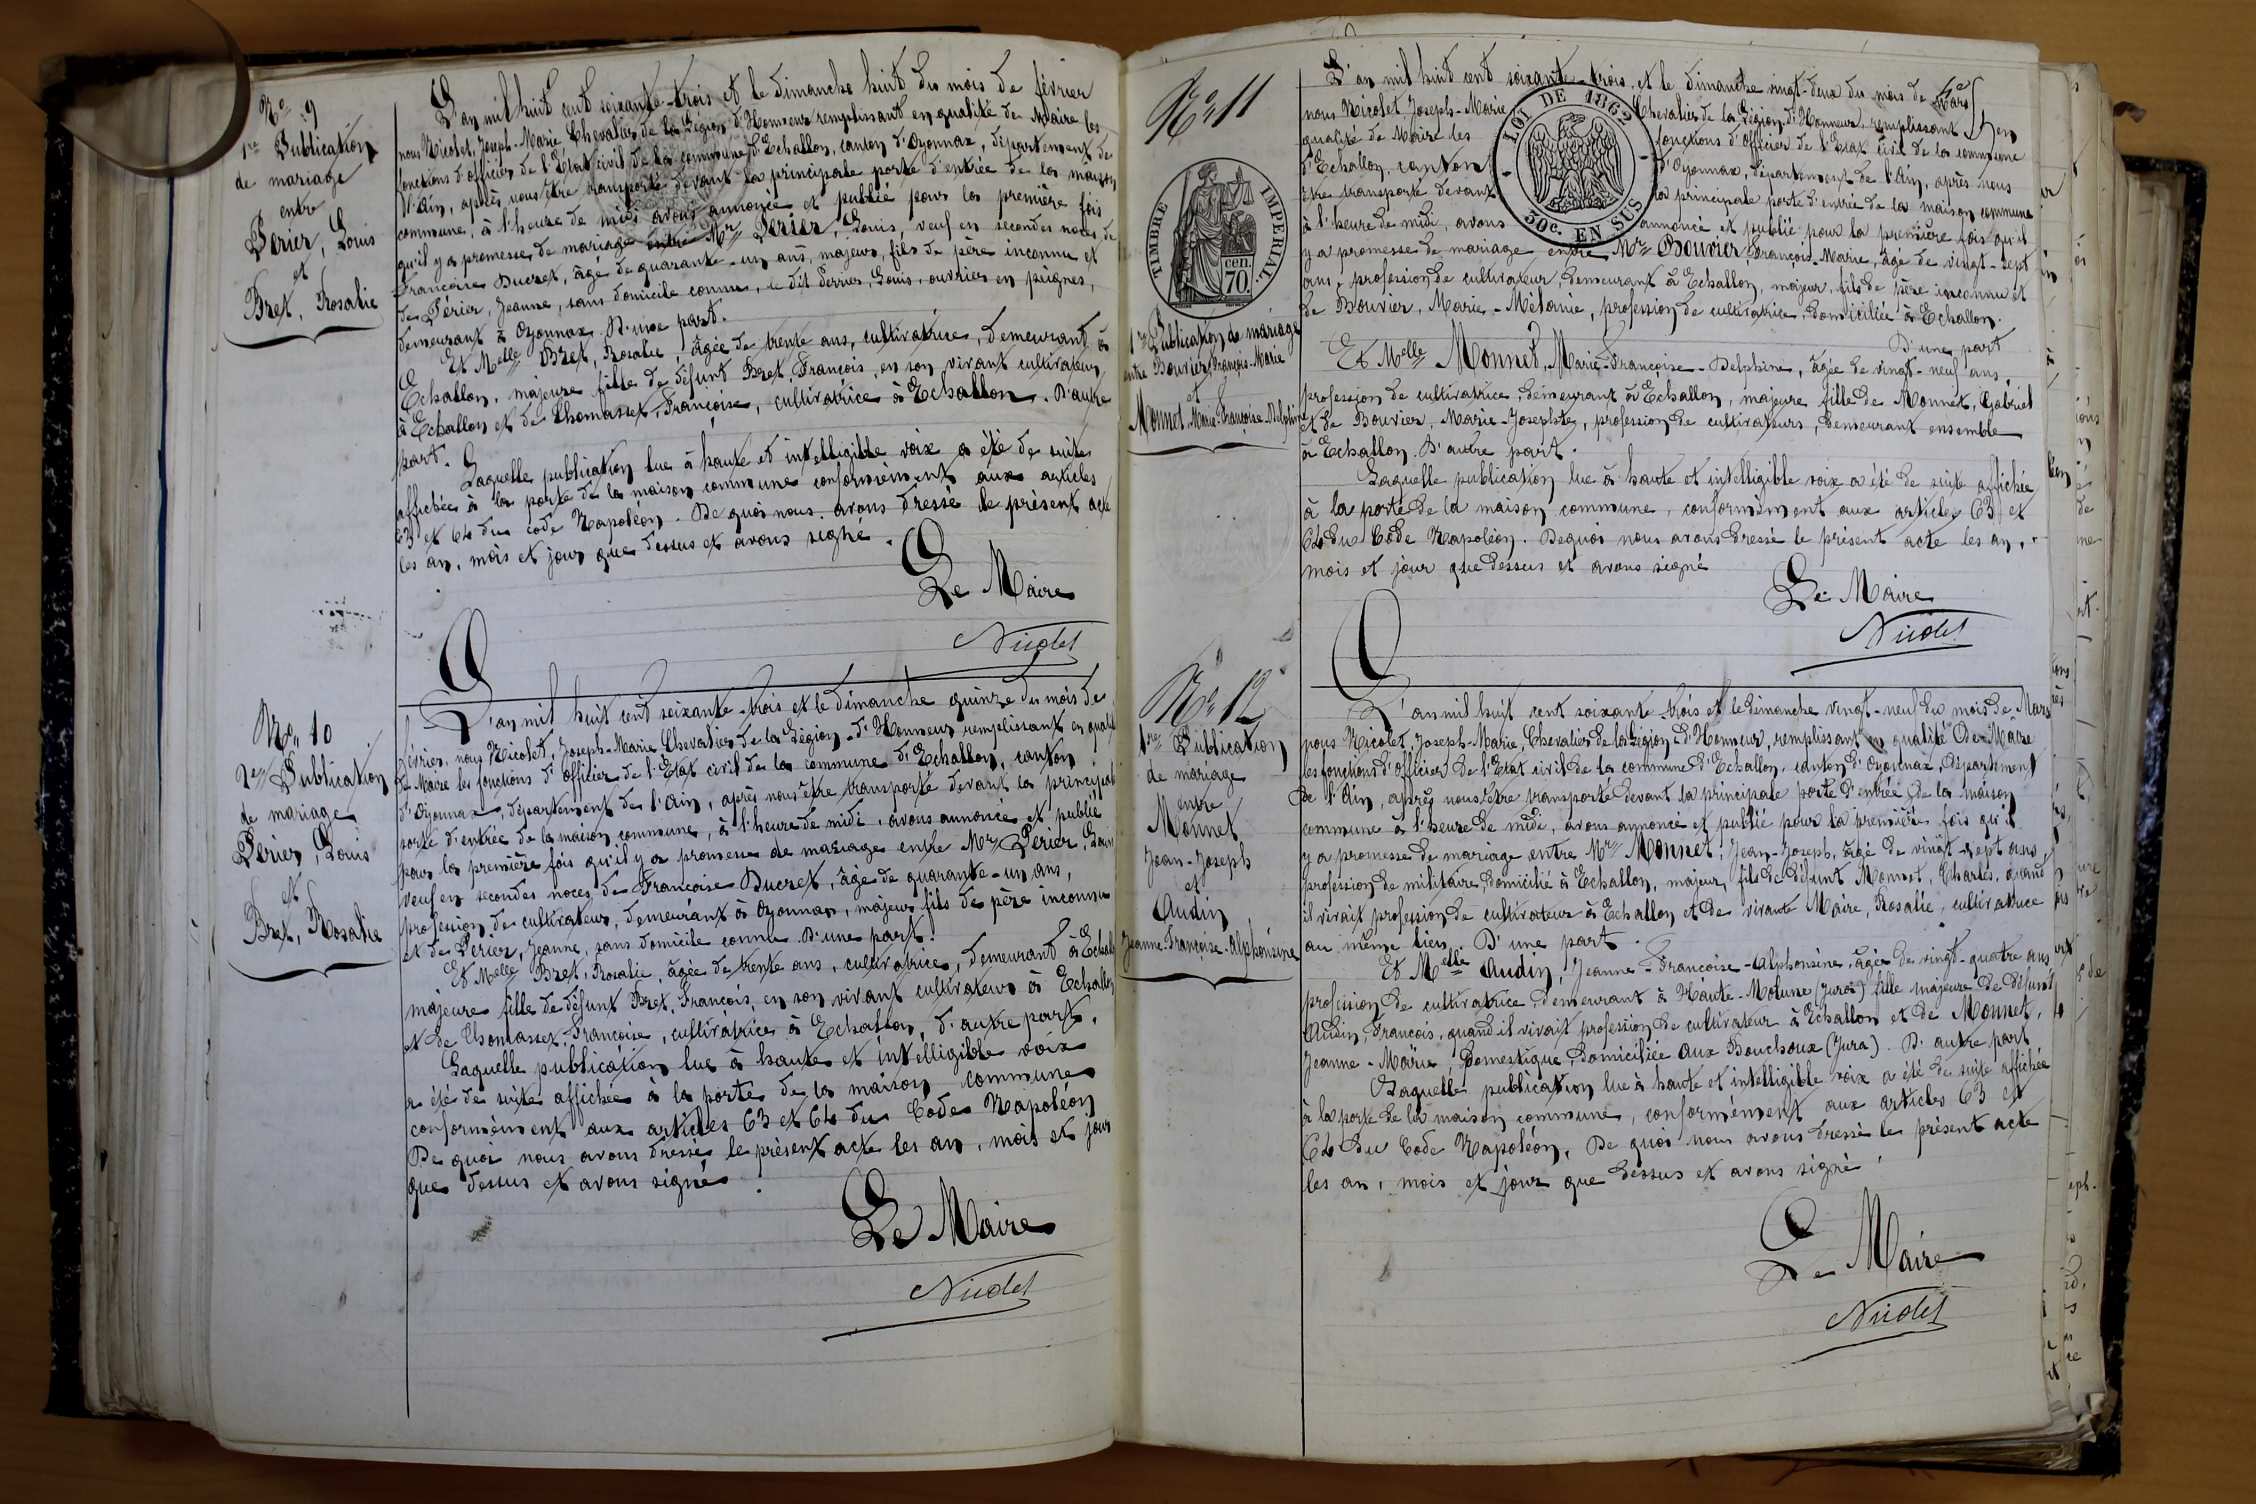 No 9
1re Publication
de mariage
entre
Perier, Louis
et
Bret, Rosalie
L'an mil huit cent soixante-trois et le dimanche huit du mois de février
nous Nicolet, Joseph-Marie, Chevalier de la Légion d'Honneur remplissant en qualité de Maire les
fonctions d'officier de l'Etat civil de la commune d'Echallon, canton d'Oyonnax, département de
l'Ain, après nous être transporté devant la principale porte d'entrée de la maison
commune, à l'heure de midi avons annoncé et publié pour la première fois
qu'il y a promesse de mariage entre Mr Perier, Louis, veuf en secondes noces de
Françoise Ducret, âgé de quarante-un ans, majeur, fils de père inconnu et
de Périer, Jeanne, sans domicile connu, le dit Perrier, Louis, ouvrier en peignes,
demeurant à Oyonnax. D'une part.
Et Melle Bret, Rosalie, âgée de trente ans, cultivatrice, demeurant à
Echallon, majeure fille de défunt Bret, François, en son vivant cultivateur
à Echallon et de Thomasset, Françoise, cultivatrice à Echallon. D'autre
part.
Laquelle publication lue à haute et intelligible voix a été de suite
affichée à la porte de la maison commune conformément aux articles
63 et 64 du code Napoléon. De quoi nous avons dressé le présent acte
les an, mois et jour que dessus et avons signé.
Le Maire
Nicolet
No 10
2e Publication
de mariage
Périer, Louis
et
Bret, Rosalie
L'an mil huit cent soixante-trois et le dimanche quinze du mois de
février, nous Nicolet, Joseph-Marie Chevalier de la Légion d'Honneur remplissant en qualité
de Maire les fonctions d'officier de l'Etat civil de la commune d'Echallon, canton
d'Oyonnax, département de l'Ain, après nous être transporté devant la principale
porte d'entrée de la maison commune, à l'heure de midi, avons annoncé et publié
pour la première fois qu'il y a promesse de mariage entre Mr Périer, Louis
veuf en secondes noces de Françoise Ducret, âgé de quarante-un ans,
profession de cultivateur, demeurant à Oyonnax, majeur fils de père inconnu
et de Périer, Jeanne, sans domicile connu. D'une part.
Et Melle Bret, Rosalie, âgée de trente ans, cultivatrice, demeurant à Echallon
majeure fille de défunt Bret, François, en son vivant cultivateur à Echallon
et de Thomasset, Françoise, cultivatrice à Echallon, d'autre part.
Laquelle publication lue à haute et intélligible voix
a été de suite affichée à la porte de la maison commune
conformément aux articles 63 et 64 du Code Napoléon
De quoi nous avons dressé le présent acte les an, mois et jour
que dessus et avons signé.
Le Maire
Nicolet
No 11
TIMBRE IMPERIAL.
cen.
70.
1re Publication de mariage
entre Bouvier, François-Marie
et
Monnet, Marie-Françoise-Delphine
LOI DE 1862
30c. EN SUS
L'an mil huit cent soixante-trois, et le dimanche vingt-deux du mois de Mars
nous Nicolet Joseph-Marie Chevalier de la Légion d'Honneur, remplissant en
qualité de Maire les fonctions d'Officier de l'Etat civil de la commune
d'Echallon, canton d'Oyonnax, département de l'Ain, après nous
être transporté devant la principale porte d'entrée de la maison commune
à l'heure de midi, avons annoncé et publié pour la première fois qu'il
y a promesse de mariage entre Mr Bouvier François-Marie, âgé de vingt-sept
ans, profession de cultivateur, demeurant à Echallon, majeur, fils de père inconnu et
de Bouvier, Marie-Mélanie, profession de cultivatrice, domiciliée à Echallon.
D'une part
Et Melle Monnet, Marie-Françoise-Delphine, âgée de vingt-neuf ans,
profession de cultivatrice, demeurant à Echallon, majeure fille de Monnet, Gabriel
et de Bouvier, Marie-Josephte, profession de cultivateurs, demeurant ensemble
à Echallon. D'autre part.
Laquelle publication lue à haute et intelligible voix a été de suite affichée
à la porte de la maison commune, conformément aux articles 63 et
64 du Code Napoléon. De quoi nous avons dressé le présent acte les an,
mois et jour que dessus et avons signé
Le Maire
Nicolet
No 12
1re Publication
de mariage
entre
Monnet
Jean-Joseph
et
Audin
Jeanne-Françoise-Alphonsine
L'an mil huit cent soixante trois et le dimanche vingt-neuf du mois de Mars
nous Nicolet, Joseph-Marie, Chevalier de la Légion-d'Honneur, remplissant en qualité de Maire
les fonctions d'Officier de l'Etat civil de la commune d'Echallon, canton d'Oyonnax, département
de l'Ain, après nous être transporté devant la principale porte d'entrée de la maison
commune à l'heure de midi, avons annoncé et publié pour la première fois qu'il
y a promesse de mariage entre Mr Monnet, Jean-Joseph, âgé de vingt-sept ans,
profession de militaire, domicilié à Echallon, majeur, fils de défunt Monnet, Charles, quand
il vivait profession de cultivateur à Echallon et de vivante Maire, Rosalie, cultivatrice
au même lieu. D'une part.
Et Melle Audin, Jeanne-Françoise-Alphonsine, âgée de vingt-quatre ans
profession de cultivatrice, demeurant à Haute-Molune (Jura) fille majeure de défunt
Audin, François, quand il vivait profession de cultivateur à Echallon et de Monnet,
Jeanne-Marie, domestique, domiciliée aux Bouchoux (Jura). D'autre part
Laquelle publication lue à haute et intelligible voix a été de suite affichée
à la porte de la maison commune, conformément aux articles 63 et
64 du Code Napoléon. De quoi nous avons dressé le présent acte
les an, mois et jour que dessus et avons signé.
Le Maire
Nicolet